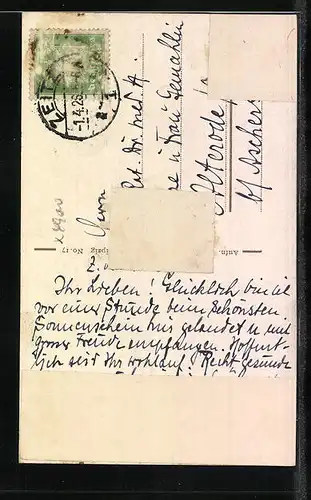 ZEIT
-1.4.26
Herrn
Dr. med. A.
u Frau Gemahlin
Alterode
b/ Aschers
x 8900
Aufn.
No. 17
Ihr Lieben! Glücklich bin ich
vor einer Stunde beim schönsten
Sonnenschein hier gelandet u mit
grosser Freude empfangen. Hoffent-
lich seid Ihr wohlauf. Recht gesunde